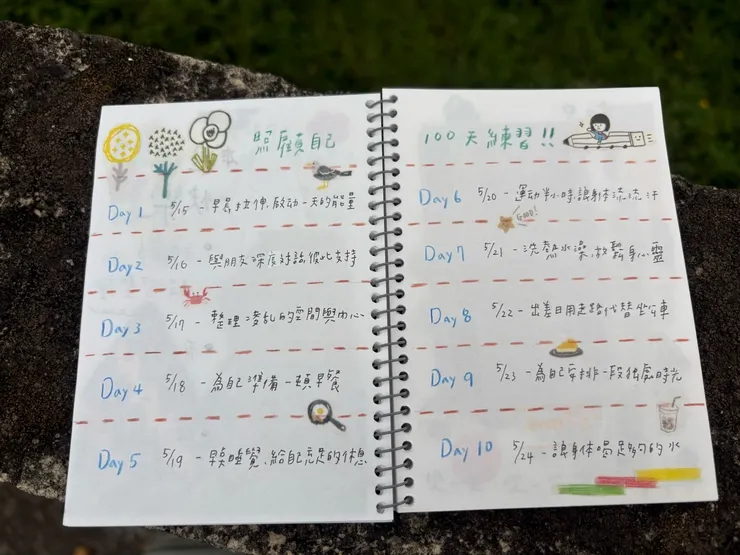 照顧自己
Day 1 5/15 - 早晨拉伸,啟动一天的能量
Day 2 5/16 - 與朋友深度对話,彼此支持
Day 3 5/17 - 整理凌乱的空間與内心
Day 4 5/18 - 為自己準備一頓早餐
Day 5 5/19 - 早点睡覺,給自己充足的休息
100天練習!!
Day 6 5/20 - 運动半小時,讓身体流流汗
GOOD!
Day 7 5/21 - 洗熱水澡,放鬆身心靈
Day 8 5/22 - 出差日用走路代替坐車
Day 9 5/23 - 為自己安排一段独處時光
Day 10 5/24 - 讓身体喝足夠的水